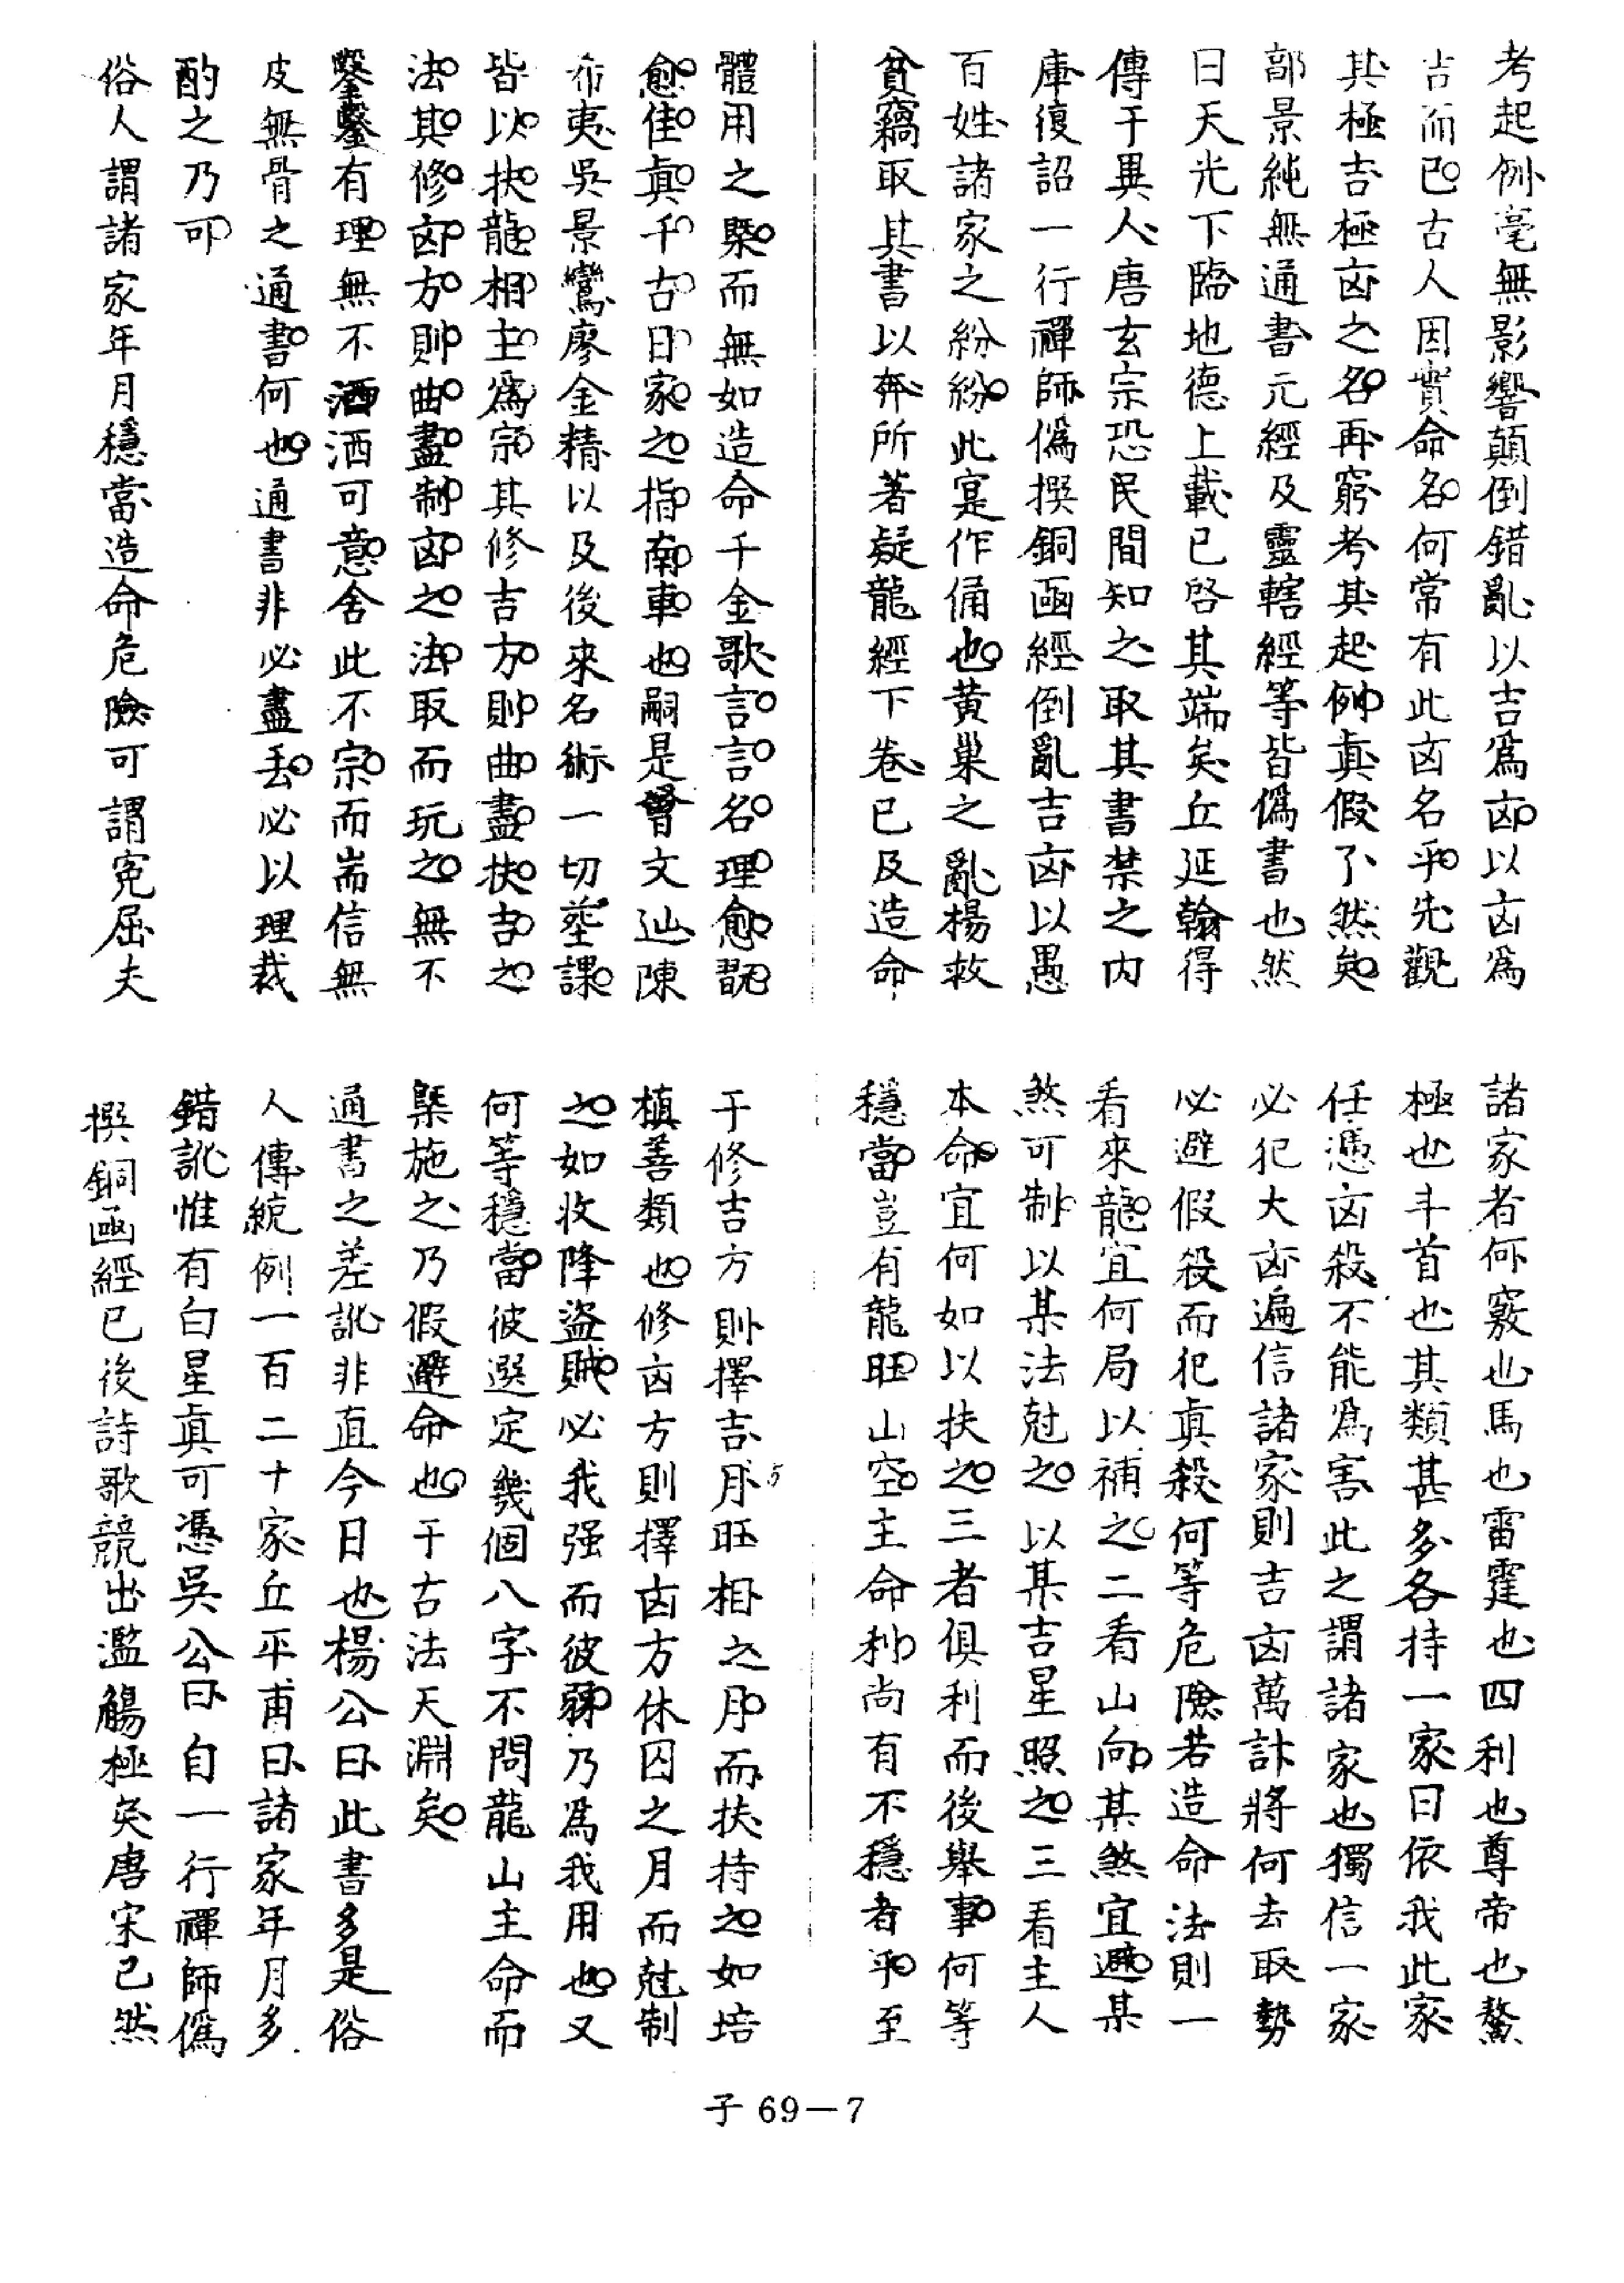 考起例毫無影響顛倒錯亂以吉爲凶以凶爲
吉而已古人因實命名何常有此凶名乎先觀
其極吉極凶之名再窮考其起例真假了然矣
郭景純無通書元經及靈轄經等皆僞書也然
曰天光下臨地德上載已啓其端矣丘延翰得
傳于異人唐玄宗恐民間知之取其書禁之內
庫復詔一行禪師僞撰銅函經倒亂吉凶以愚
百姓諸家之紛紛此寔作俑也黃巢之亂楊救
貧竊取其書以奔所著疑龍經下卷已及造命
體用之槩而無如造命千金歌言言名理愈翫
愈佳真千古日家之指南車也嗣是曾文辿陳
希夷吳景鸞廖金精以及後來名術一切塟課
皆以扶龍相主爲宗其修吉方則曲盡扶吉之
法其修凶方則曲盡制凶之法取而玩之無不
鑿鑿有理無不洒洒可意舍此不宗而耑信無
皮無骨之通書何也通書非必盡丟必以理裁
酌之乃可
俗人謂諸家年月穩當造命危險可謂寃屈夫
諸家者何竅也馬也雷霆也四利也尊帝也鰲
極也斗首也其類甚多各持一家曰依我此家
任憑凶殺不能爲害此之謂諸家也獨信一家
必犯大凶遍信諸家則吉凶萬訃將何去取勢
必避假殺而犯真殺何等危險若造命法則一
看來龍宜何局以補之二看山向某煞宜避某
煞可制以某法尅之以某吉星照之三看主人
本命宜何如以扶之三者俱利而後舉事何等
穩當豈有龍旺山空主命利尚有不穩者乎至
于修吉方則擇吉月旺相之月而扶持之如培
植善類也修凶方則擇凶方休囚之月而尅制
之如收降盜賊必我强而彼弱乃爲我用也又
何等穩當彼選定幾個八字不問龍山主命而
槩施之乃假避命也于古法天淵矣
通書之差訛非直今日也楊公曰此書多是俗
人傳統例一百二十家丘平甫曰諸家年月多
錯訛惟有白星真可憑吳公曰自一行禪師僞
撰銅函經已後詩歌競出濫觴極矣唐宋已然
子 69－7